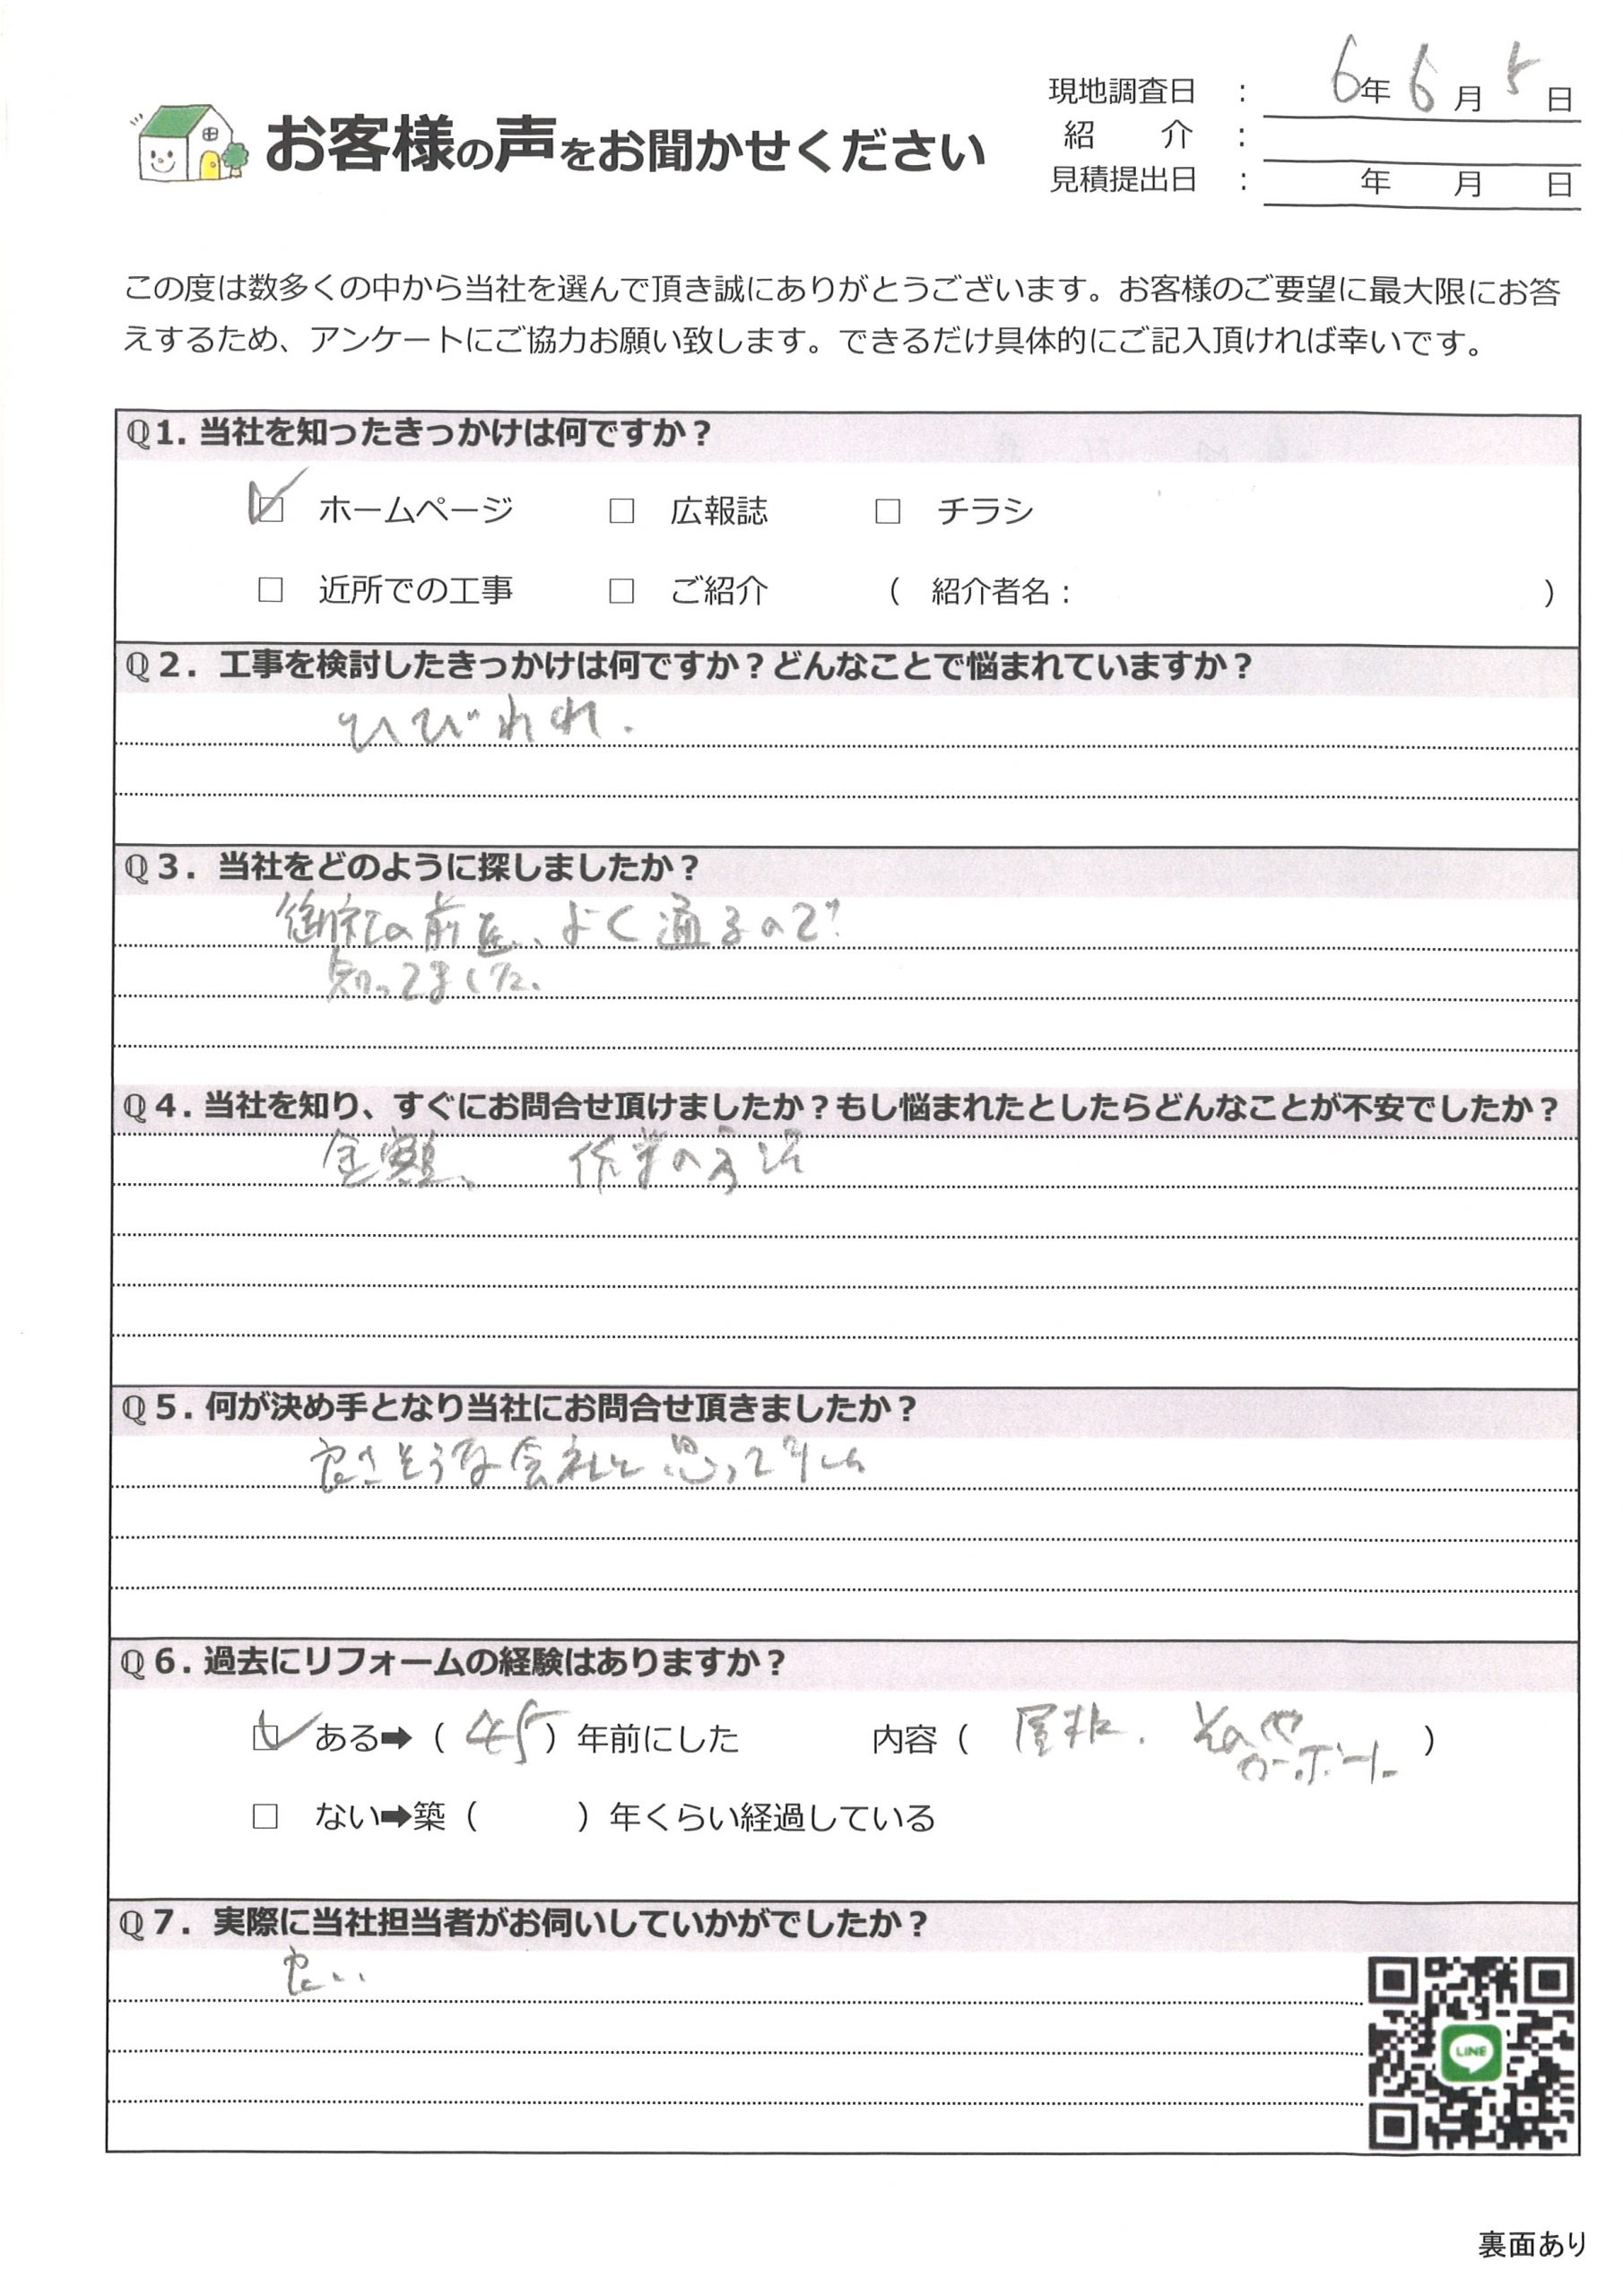 お客様の声をお聞かせください
現地調査日 : 6年 6月 5日
紹 介 :
見積提出日 : 年 月 日
この度は数多くの中から当社を選んで頂き誠にありがとうございます。お客様のご要望に最大限にお答
えするため、アンケートにご協力お願い致します。できるだけ具体的にご記入頂ければ幸いです。
Q1. 当社を知ったきっかけは何ですか？
☑ ホームページ □ 広報誌 □ チラシ
□ 近所での工事 □ ご紹介 ( 紹介者名： )
Q2. 工事を検討したきっかけは何ですか？どんなことで悩まれていますか？
ひびわれ.
Q3. 当社をどのように探しましたか？
御社の前を、よく通るので
知ってました。
Q4. 当社を知り、すぐにお問合せ頂けましたか？もし悩まれたとしたらどんなことが不安でしたか？
金額、 作業の方法
Q5. 何が決め手となり当社にお問合せ頂きましたか？
良さそうな会社と思って
Q6. 過去にリフォームの経験はありますか？
☑ ある➡（ 45 ）年前にした 内容（ 屋根. カーポート ）
□ ない➡築（ ）年くらい経過している
Q7. 実際に当社担当者がお伺いしていかがでしたか？
良い
LINE
裏面あり